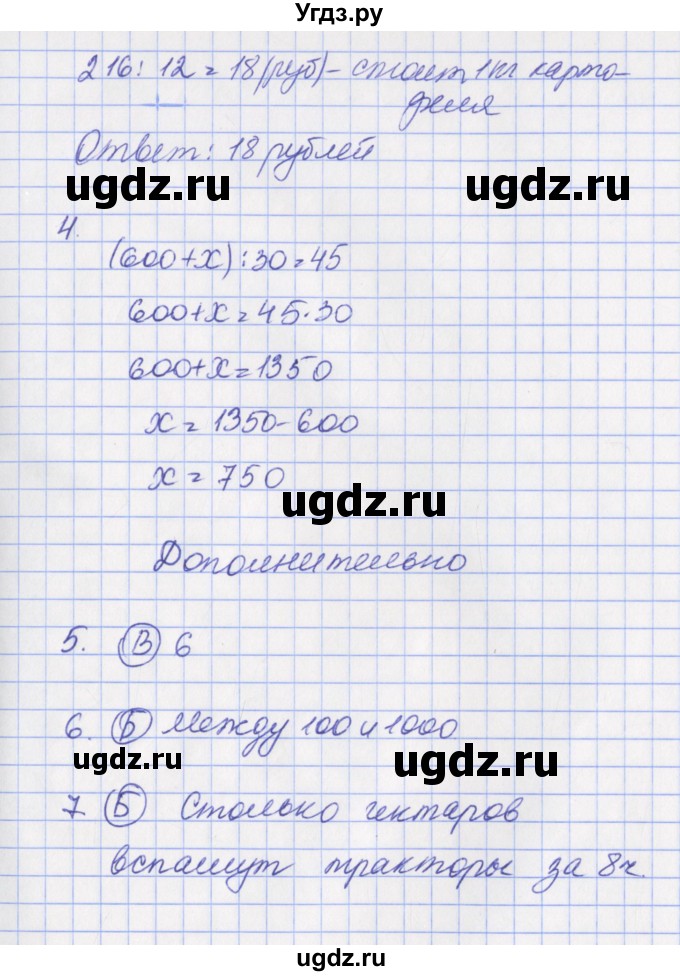 Угдз.ру
216 : 12 = 18 (руб) - стоит 1 кг карто-
феля
Ответ: 18 рублей
ugdz.ru ugdz.ru
4.
(600+x) : 30 = 45
600+x = 45·30
600+x = 1350
x = 1350-600
x = 750
ugdz.ru
Дополнительно
5. В 6
6. Б Между 100 и 1000
ugdz.ru ugdz.ru
7 Б Столько гектаров
вспашут тракторы за 8ч.
ugdz.ru